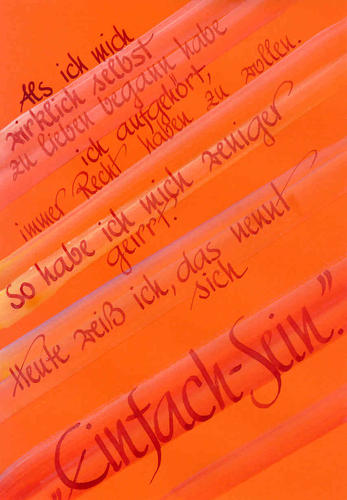 Als ich mich
wirklich selbst
zu lieben begann habe
ich aufgehört,
immer Recht haben zu wollen.
So habe ich mich weniger
geirrt.
Heute weiß ich, das nennt
sich
„Einfach-Sein".